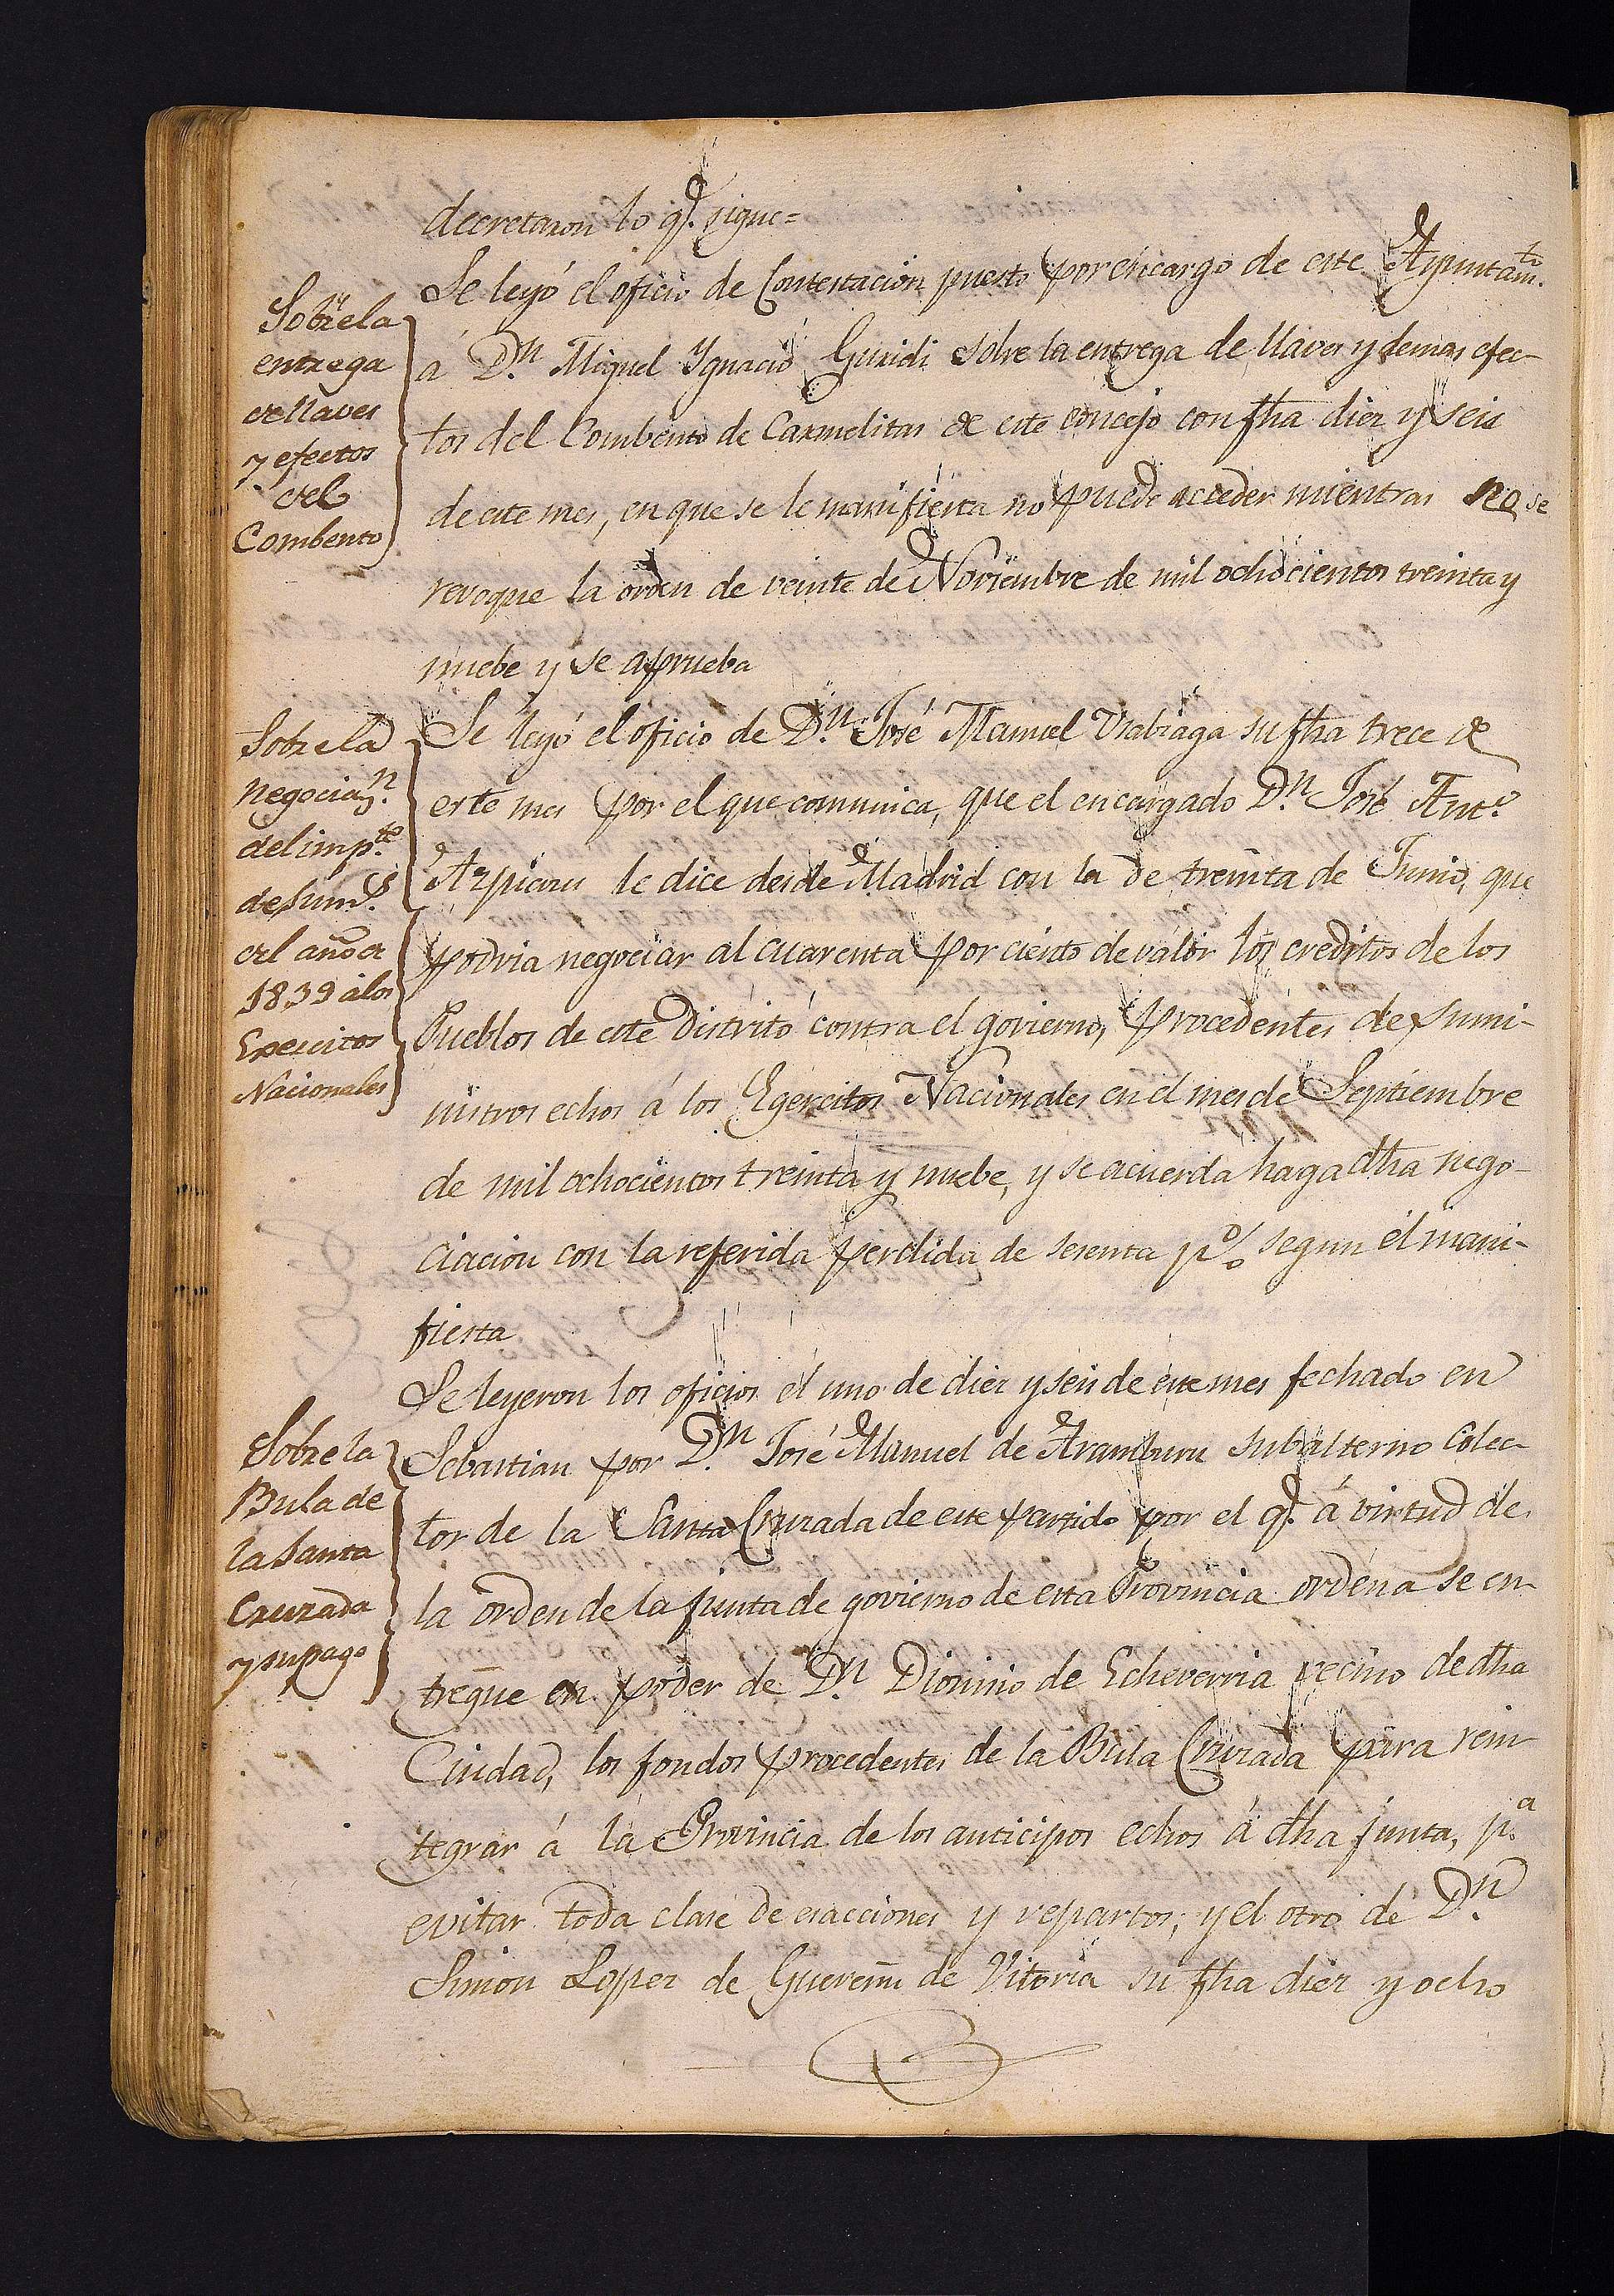 decretaron lo q.e sigue=
Sobre la
entrega
de llaves
y efectos
del
Combento
Se leyó el oficio de Contestacion puesto por encargo de este Ayuntam.to
á D.n Miguel Ygnacio Guridi sobre la entrega de llaves y demas efec-
tos del Combento de Carmelitas de este concejo con fha diez y seis
de este mes, en que se le manifiesta no puede acceder mientras no se
revoque la orden de veinte de Noviembre de mil ochocientos treinta y
nuebe y se aprueba
Sobre la
negociaz.n
del imp.te
de sum.s
del año de
1839 á los
Exercitos
Nacionales
Se leyó el oficio de D.n José Manuel Urabiaga su fha trece de
este mes por el que comunica, que el encargado D.n José Ant.o
Azpiazu le dice desde Madrid con la de treinta de Junio, que
podria negociar al cuarenta por ciento de valor los creditos de los
Pueblos de este Distrito contra el govierno, procedentes de sumi-
nistros echos á los Egercitos Nacionales en el mes de Septiembre
de mil ochocientos treinta y nuebe, y se acuerda haga dha nego-
ciacion con la referida perdida de sesenta p% segun él mani-
fiesta
Sobre la
Bula de
la Santa
Cruzada
y su pago
Se leyeron los oficios el uno de diez y seis de este mes fechado en
Sebastian por D.n José Manuel de Aramburu subalterno Colec-
tor de la Santa Cruzada de este partido por el q.e á virtud de
la orden de la junta de govierno de esta Provincia ordena se en-
tregue en poder de D.n Dionisio de Echeverria vecino de dha
Ciudad, los fondos procedentes de la Bula Cruzada para rein-
tegrar á la Provincia de los anticipos echos á dha junta, p.a
evitar toda clase de esacciones y repartos; y el otro de D.n
Simon Lopez de Guereñu de Vitoria su fha diez y ocho